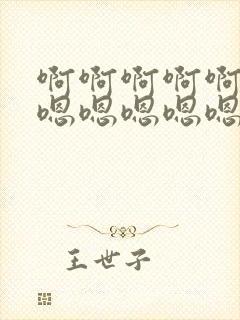 啊啊啊啊啊
嗯嗯嗯嗯嗯
王世子